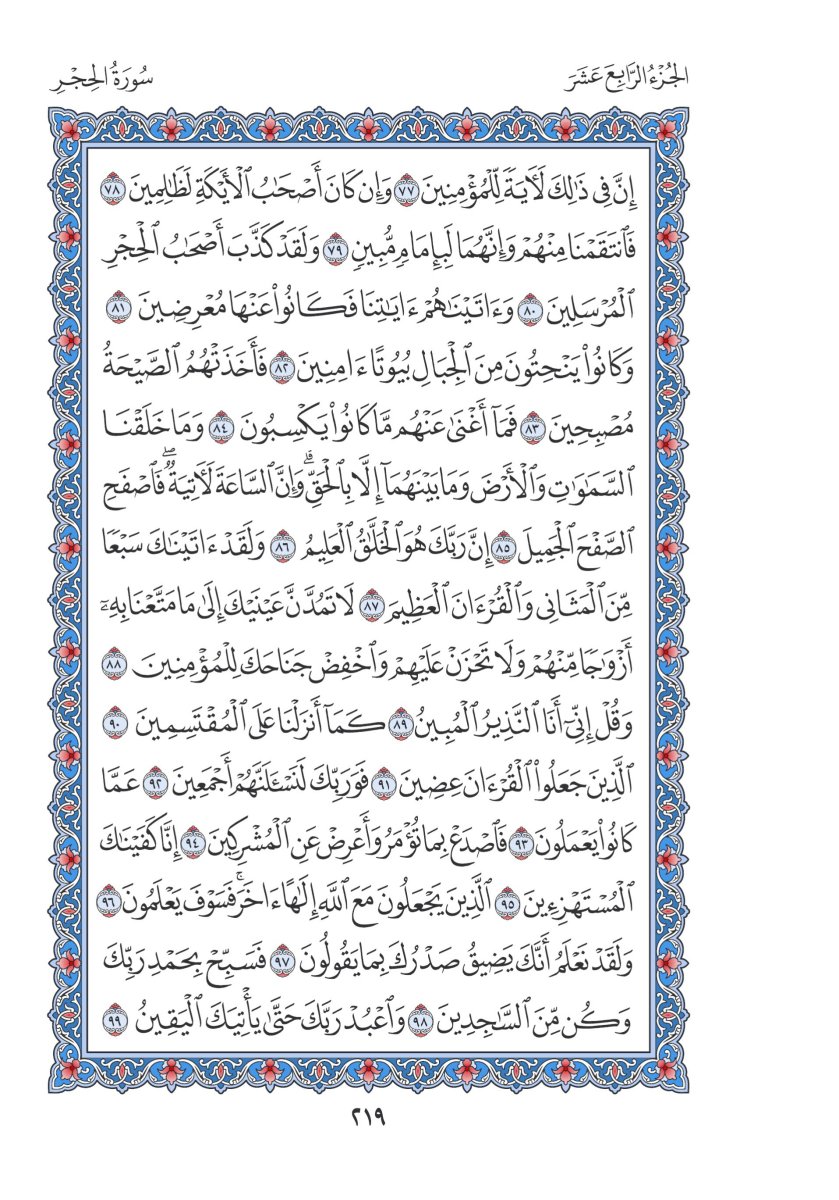 الجُزْءُ الرَّابِعَ عَشَرَ
سُورَةُ الحِجْرِ
إِنَّ فِى ذَٰلِكَ لَءَايَةً لِّلْمُؤْمِنِينَ ٧٧ وَإِن كَانَ أَصْحَٰبُ ٱلْأَيْكَةِ لَظَٰلِمِينَ ٧٨
فَٱنتَقَمْنَا مِنْهُمْ وَإِنَّهُمَا لَبِإِمَامٍ مُّبِينٍ ٧٩ وَلَقَدْ كَذَّبَ أَصْحَٰبُ ٱلْحِجْرِ
ٱلْمُرْسَلِينَ ٨٠ وَءَاتَيْنَٰهُمْ ءَايَٰتِنَا فَكَانُوا۟ عَنْهَا مُعْرِضِينَ ٨١
وَكَانُوا۟ يَنْحِتُونَ مِنَ ٱلْجِبَالِ بُيُوتًا ءَامِنِينَ ٨٢ فَأَخَذَتْهُمُ ٱلصَّيْحَةُ
مُصْبِحِينَ ٨٣ فَمَآ أَغْنَىٰ عَنْهُم مَّا كَانُوا۟ يَكْسِبُونَ ٨٤ وَمَا خَلَقْنَا
ٱلسَّمَٰوَٰتِ وَٱلْأَرْضَ وَمَا بَيْنَهُمَآ إِلَّا بِٱلْحَقِّ ۗ وَإِنَّ ٱلسَّاعَةَ لَءَاتِيَةٌ ۖ فَٱصْفَحِ
ٱلصَّفْحَ ٱلْجَمِيلَ ٨٥ إِنَّ رَبَّكَ هُوَ ٱلْخَلَّٰقُ ٱلْعَلِيمُ ٨٦ وَلَقَدْ ءَاتَيْنَٰكَ سَبْعًا
مِّنَ ٱلْمَثَانِى وَٱلْقُرْءَانَ ٱلْعَظِيمَ ٨٧ لَا تَمُدَّنَّ عَيْنَيْكَ إِلَىٰ مَا مَتَّعْنَا بِهِۦٓ
أَزْوَٰجًا مِّنْهُمْ وَلَا تَحْزَنْ عَلَيْهِمْ وَٱخْفِضْ جَنَاحَكَ لِلْمُؤْمِنِينَ ٨٨
وَقُلْ إِنِّىٓ أَنَا ٱلنَّذِيرُ ٱلْمُبِينُ ٨٩ كَمَآ أَنزَلْنَا عَلَى ٱلْمُقْتَسِمِينَ ٩٠
ٱلَّذِينَ جَعَلُوا۟ ٱلْقُرْءَانَ عِضِينَ ٩١ فَوَرَبِّكَ لَنَسْـَٔلَنَّهُمْ أَجْمَعِينَ ٩٢ عَمَّا
كَانُوا۟ يَعْمَلُونَ ٩٣ فَٱصْدَعْ بِمَا تُؤْمَرُ وَأَعْرِضْ عَنِ ٱلْمُشْرِكِينَ ٩٤ إِنَّا كَفَيْنَٰكَ
ٱلْمُسْتَهْزِءِينَ ٩٥ ٱلَّذِينَ يَجْعَلُونَ مَعَ ٱللَّهِ إِلَٰهًا ءَاخَرَ ۚ فَسَوْفَ يَعْلَمُونَ ٩٦
وَلَقَدْ نَعْلَمُ أَنَّكَ يَضِيقُ صَدْرُكَ بِمَا يَقُولُونَ ٩٧ فَسَبِّحْ بِحَمْدِ رَبِّكَ
وَكُن مِّنَ ٱلسَّٰجِدِينَ ٩٨ وَٱعْبُدْ رَبَّكَ حَتَّىٰ يَأْتِيَكَ ٱلْيَقِينُ ٩٩
٢١٩